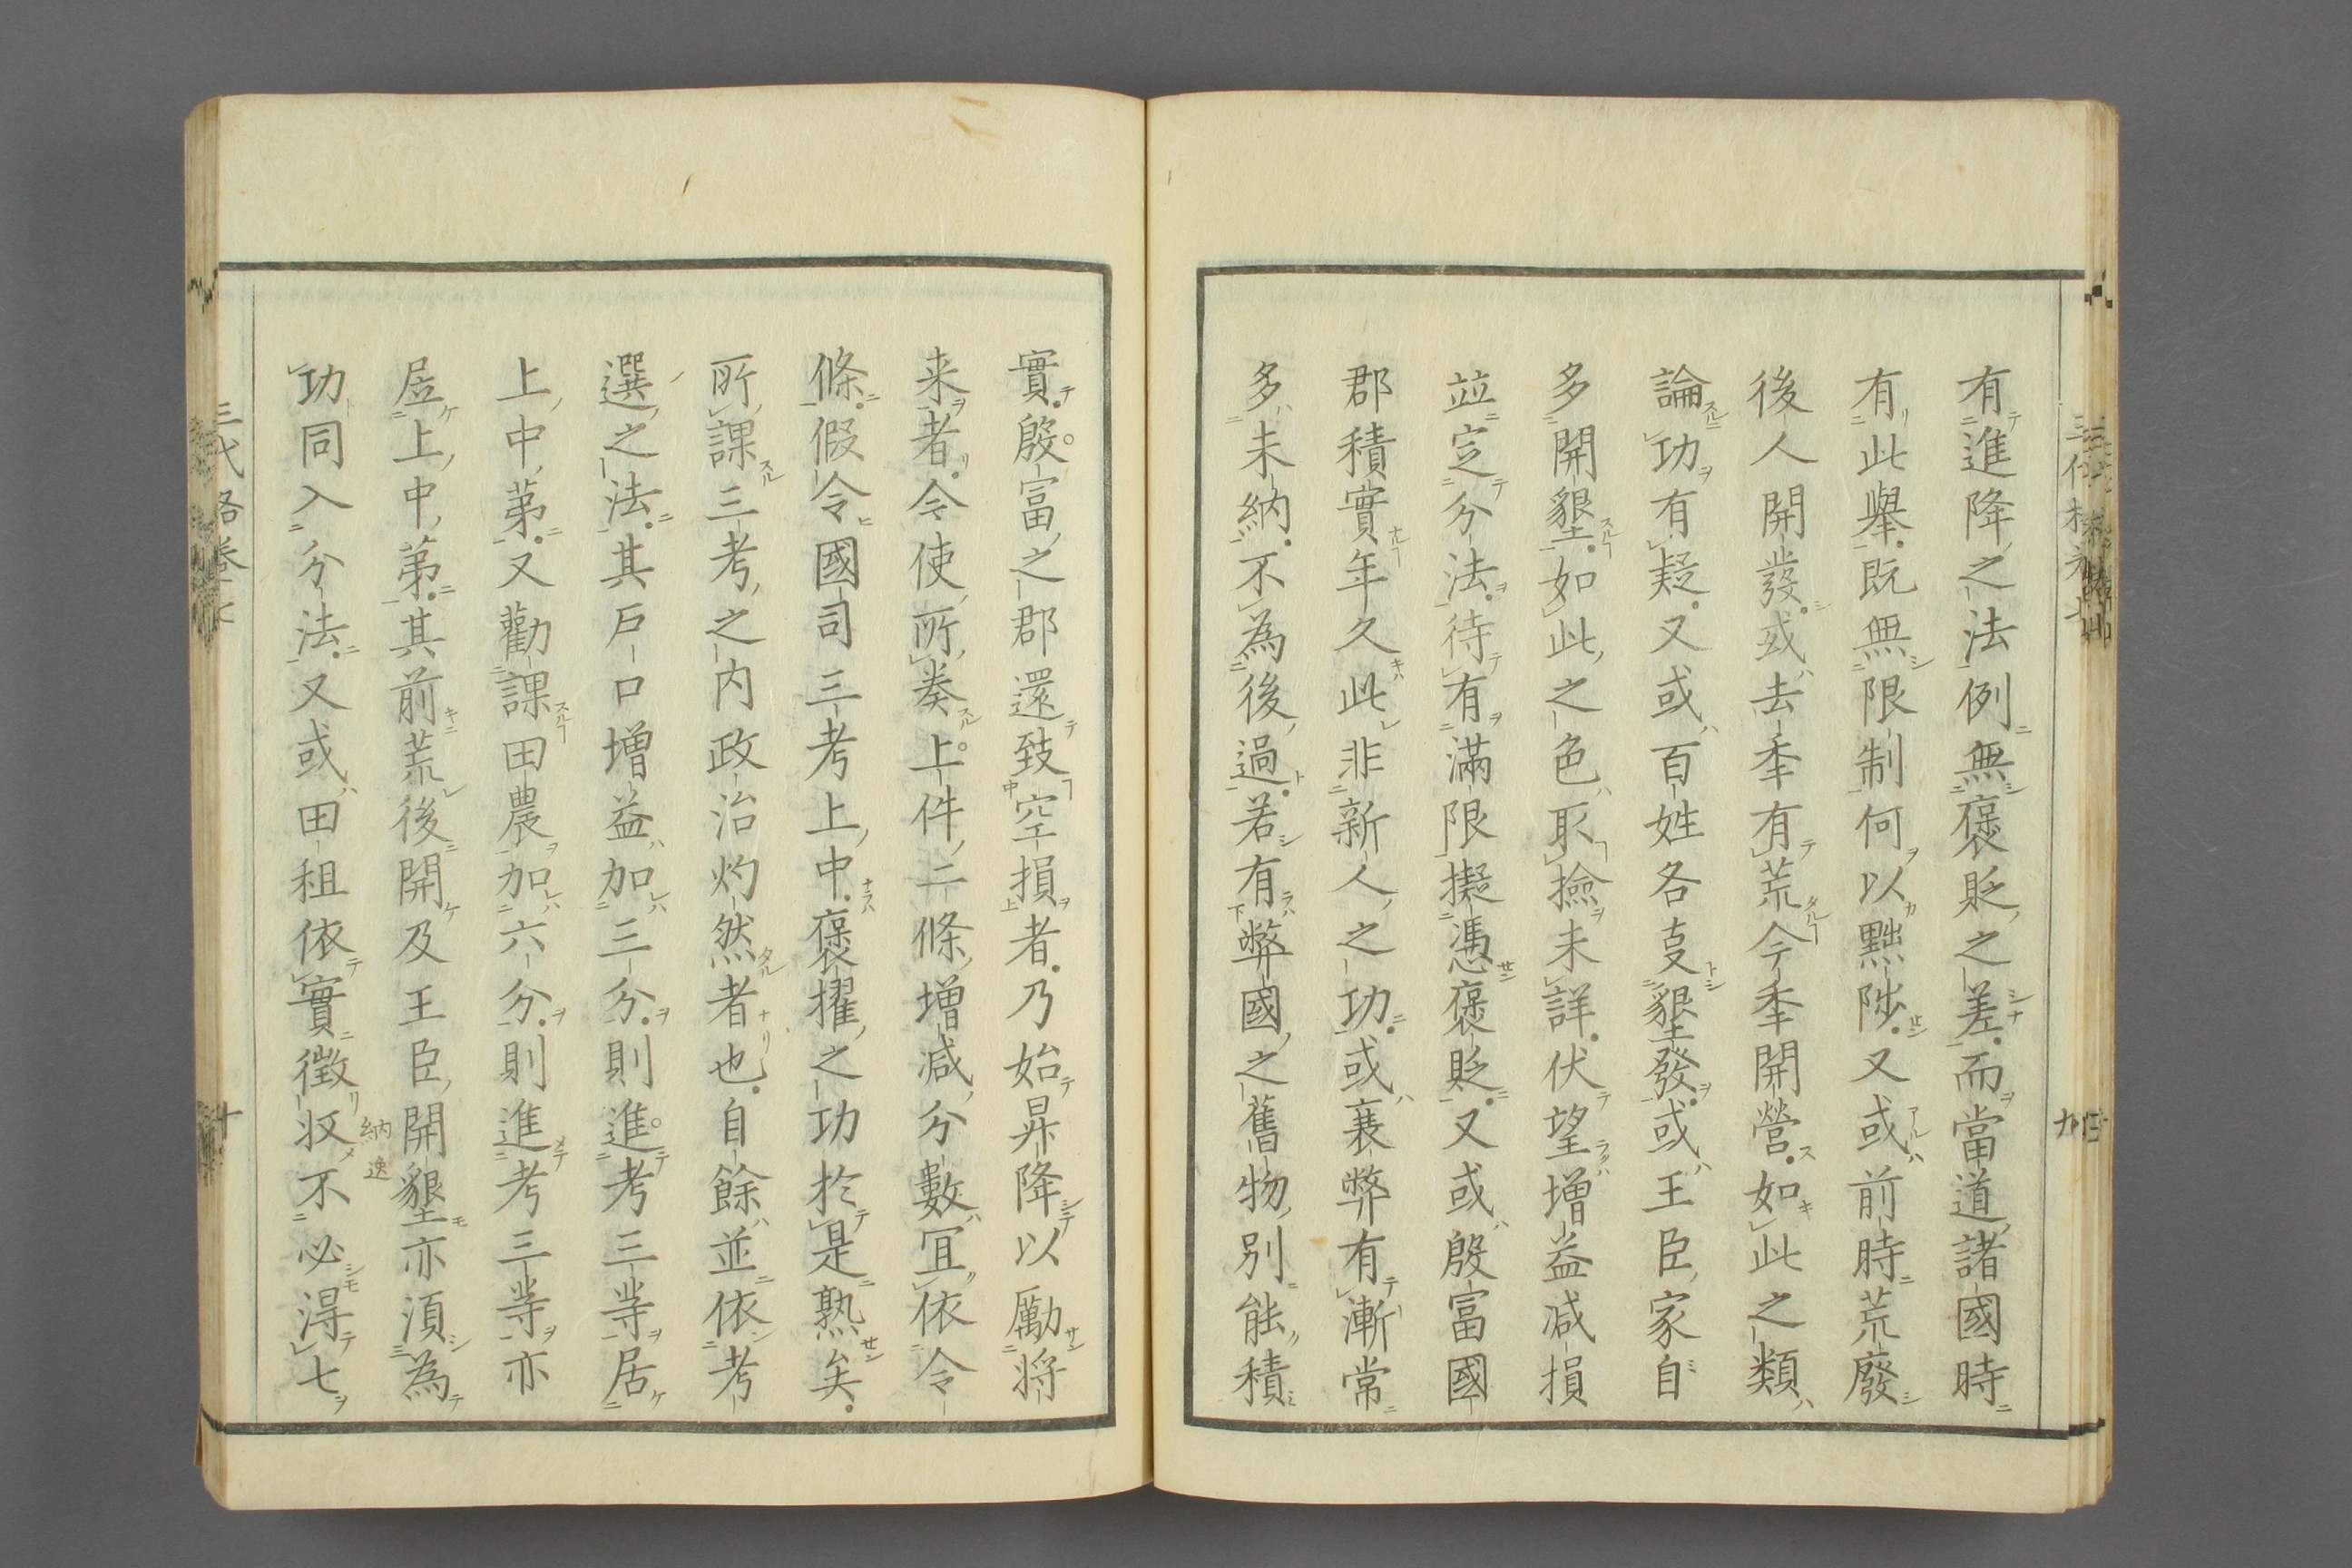 有進降之法例無褒貶之差而當道諸國時
有此舉既無限制何以黜陟又或前時荒廢
後人開發或去秊有荒今秊開營如此之類
論功有疑又或百姓各支墾發或王臣家自
多開墾如此之色取撿未詳伏望增益减損
並定分法待有滿限擬憑褒貶又或殷富國
郡積實年久此非新人之功或衰弊有漸常
多未納不為後過若有弊國之舊物別能積
實殷富之郡還致空損者乃始昇降以勵将
来者令使所奏上件二條增减分數宜依令
條假令國司三考上中褒擢之功於是熟矣
所課三考之内政治灼然者也自餘並依考
選之法其戶口增益加三分則進考三等居
上中苐又勸課田農加六分則進考三等亦
居上中苐其前荒後開及王臣開墾亦湏為
功同入分法又或田租依實徴収不必淂七
納逸
三代格卷七
十